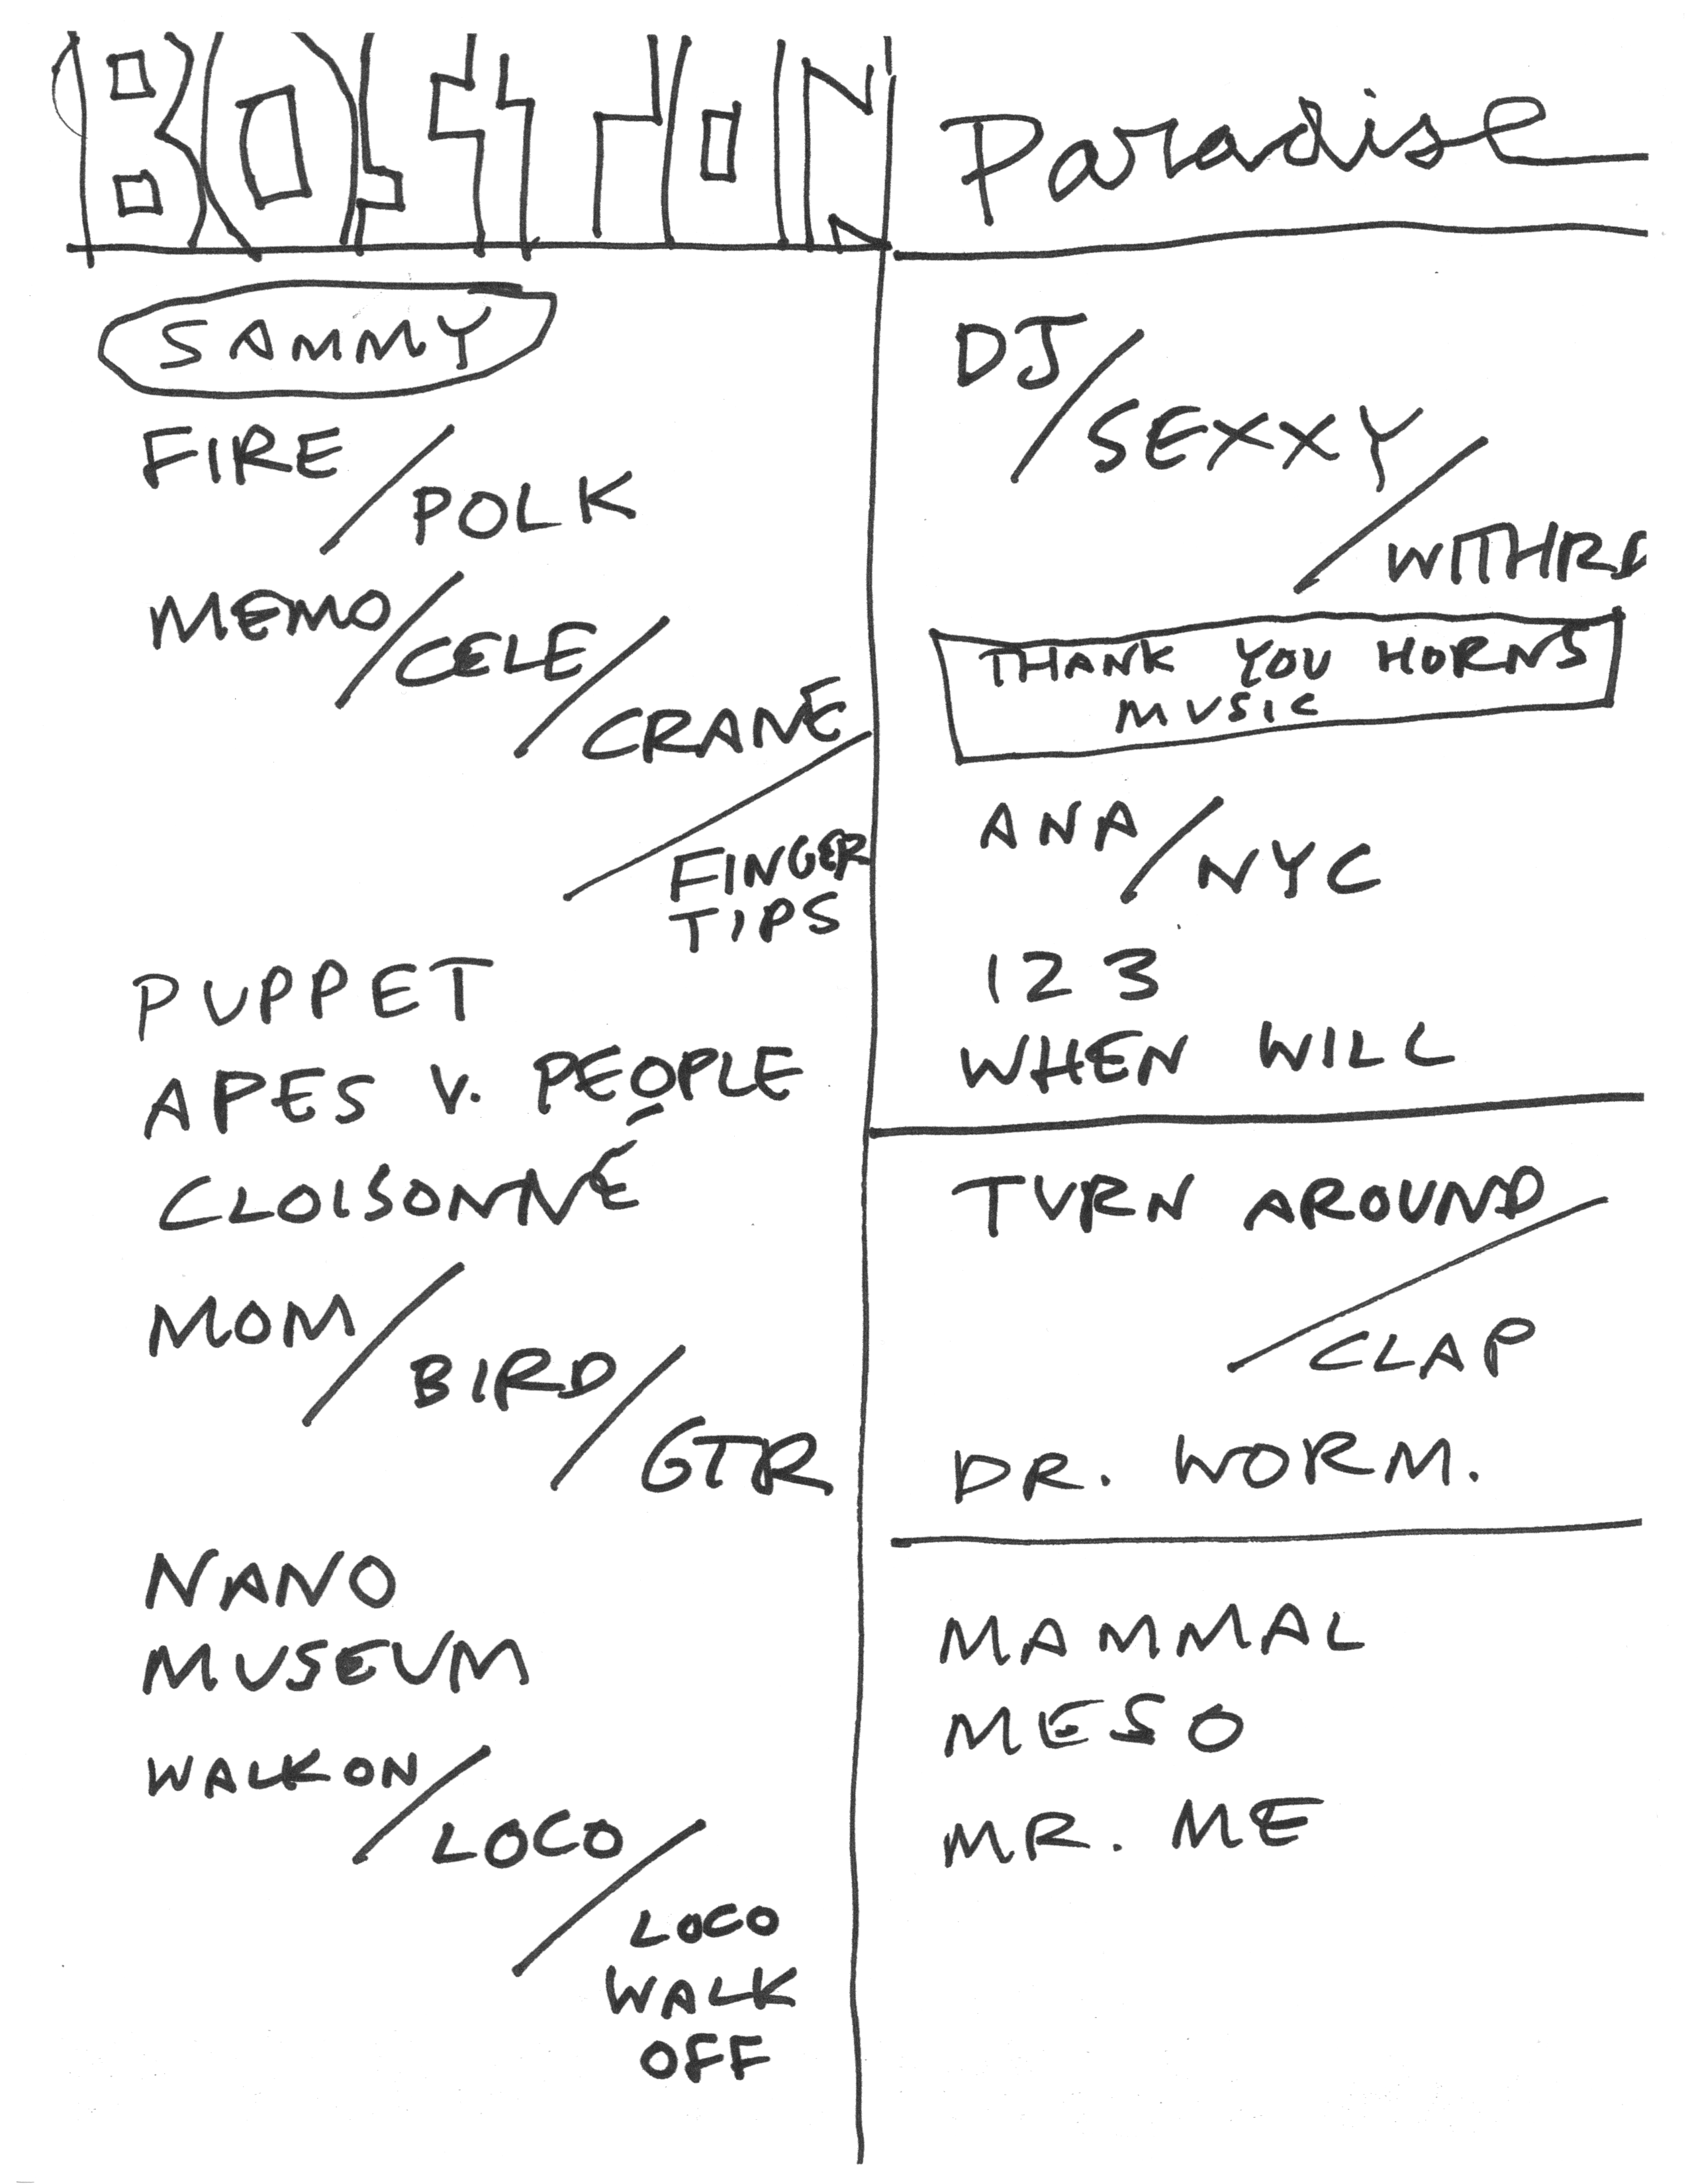 BOSTON Paradise
SAMMY
FIRE / POLK
MEMO / CELE / CRANE
/ FINGER
TIPS
PUPPET
APES V. PEOPLE
CLOISONNÉ
MOM / BIRD / GTR
NANO
MUSEUM
WALK ON / LOCO /
LOCO
WALK
OFF
DJ / SEXXY / WITHRE
THANK YOU HORNS
MUSIC
ANA / NYC
123
WHEN WILL
TURN AROUND
/ CLAP
DR. WORM.
MAMMAL
MESO
MR. ME